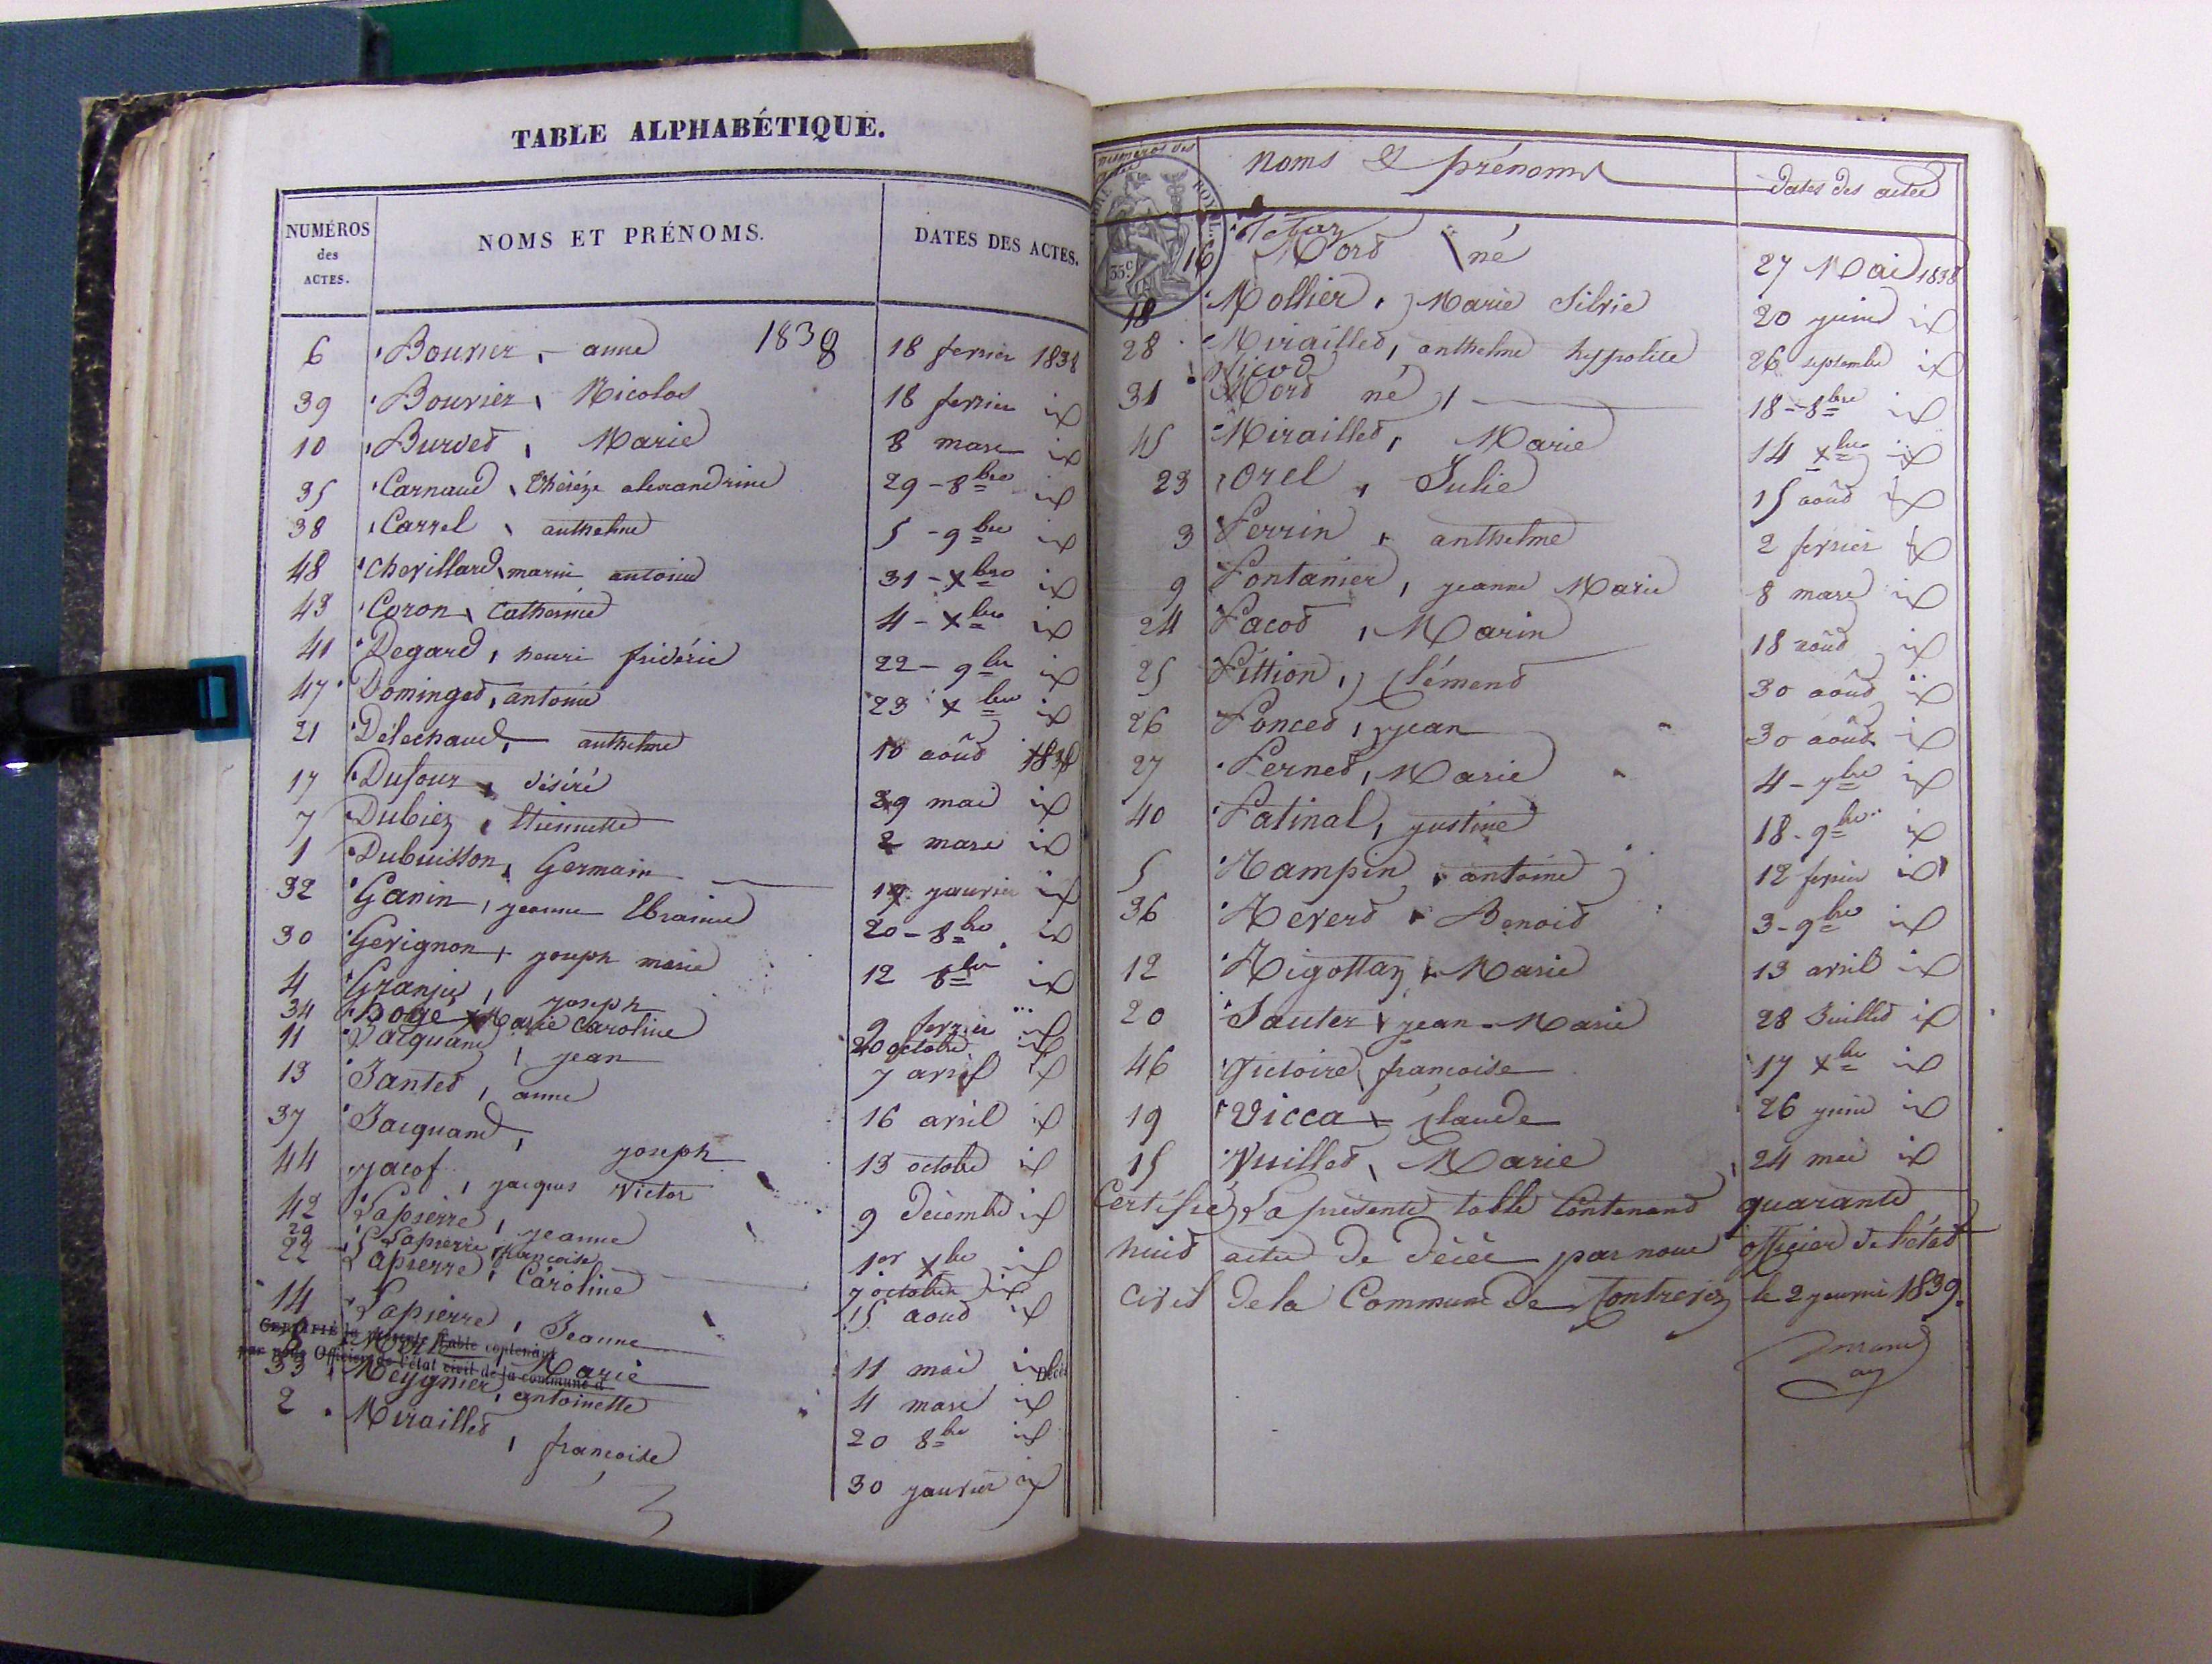 TABLE ALPHABÉTIQUE.
NUMÉROS des ACTES. NOMS ET PRÉNOMS. DATES DES ACTES.
1838
6 Bouvier, anne 18 fevrier 1838
39 Bouvier, Nicolas 18 fevrier id
10 Burdet, Marie 8 mars id
35 Carnaud, thérèze alexandrine 29 - 8bre id
38 Carrel, anthelme 5 - 9bre id
48 chevillard, marin antoine 31 - Xbre id
43 Coron, Catherine 4 - Xbre id
41 Degard, henri fridéric 22 - 9bre id
47 Dominget, antoine 23 Xbre id
21 Délechaud, anthelme 10 août 1838
17 Dufour, désiré 29 mai id
7 Dubiez, Etiennette 2 mars id
1 Dubuisson, Germain janvier id
32 Ganin, jeanne 20 - 8bre id
30 Gerignon, joseph marie 12 8bre id
4 Granjus, joseph 9 fevrier id
34 Marie Caroline 20 octobre id
11 Jacquand, jean 7 avril id
13 Jantet, anne 16 avril id
37 Jacquand, joseph 13 octobre id
44 jacof, jacques Victor 9 décembre id
42 Lapierre, jeanne 1er Xbre id
29 Lapierre, françoise 7 octobre id
22 Lapierre, Caroline 15 aout id
14 Lapierre, Jeanne 11 mai id
CERTIFIÉ la présente Table contenant
par nous Officier de l'état civil de la commune d
8 Marie 4 mars id
33 Meygnier, antoinette 20 8bre id
2 Miraillet, françoise 30 janvier id
numéros des actes noms & prénoms dates des actes
16 Mort né 27 Mai 1838
18 Mollier, Marie Silvie 20 juin id
28 Miraillet, anthelme hypolite 26 septembre id
Nicod
31 Mort né, 18 - 8bre id
45 Miraillet, Marie 14 Xbre id
23 Orel, Julie 15 août id
3 Perrin, anthelme 2 fevrier id
9 Pontanier, jeanne Marie 8 mars id
24 Pacod, Marin 18 août id
25 Pittion, Clément 30 août id
26 Poncet, jean 30 août id
27 Pernet, Marie 4 - 7bre id
40 Patinal, justine 18 - 9bre id
5 Rampin, antoine 12 fevrier id
36 Reverd, Benoit 3 - 9bre id
12 Rigottaz, Marie 13 avril id
20 Sauter, jean-Marie 28 Juillet id
46 Victoire, françoise 17 Xbre id
19 Vicca, Claude 26 juin id
15 Vuillet, Marie 24 mai id
Certifié, La présente table Contenant quarante
huit actes de décès par nous officier de l'état
civil de la Commune de Contrevoz le 2 janvier 1839.